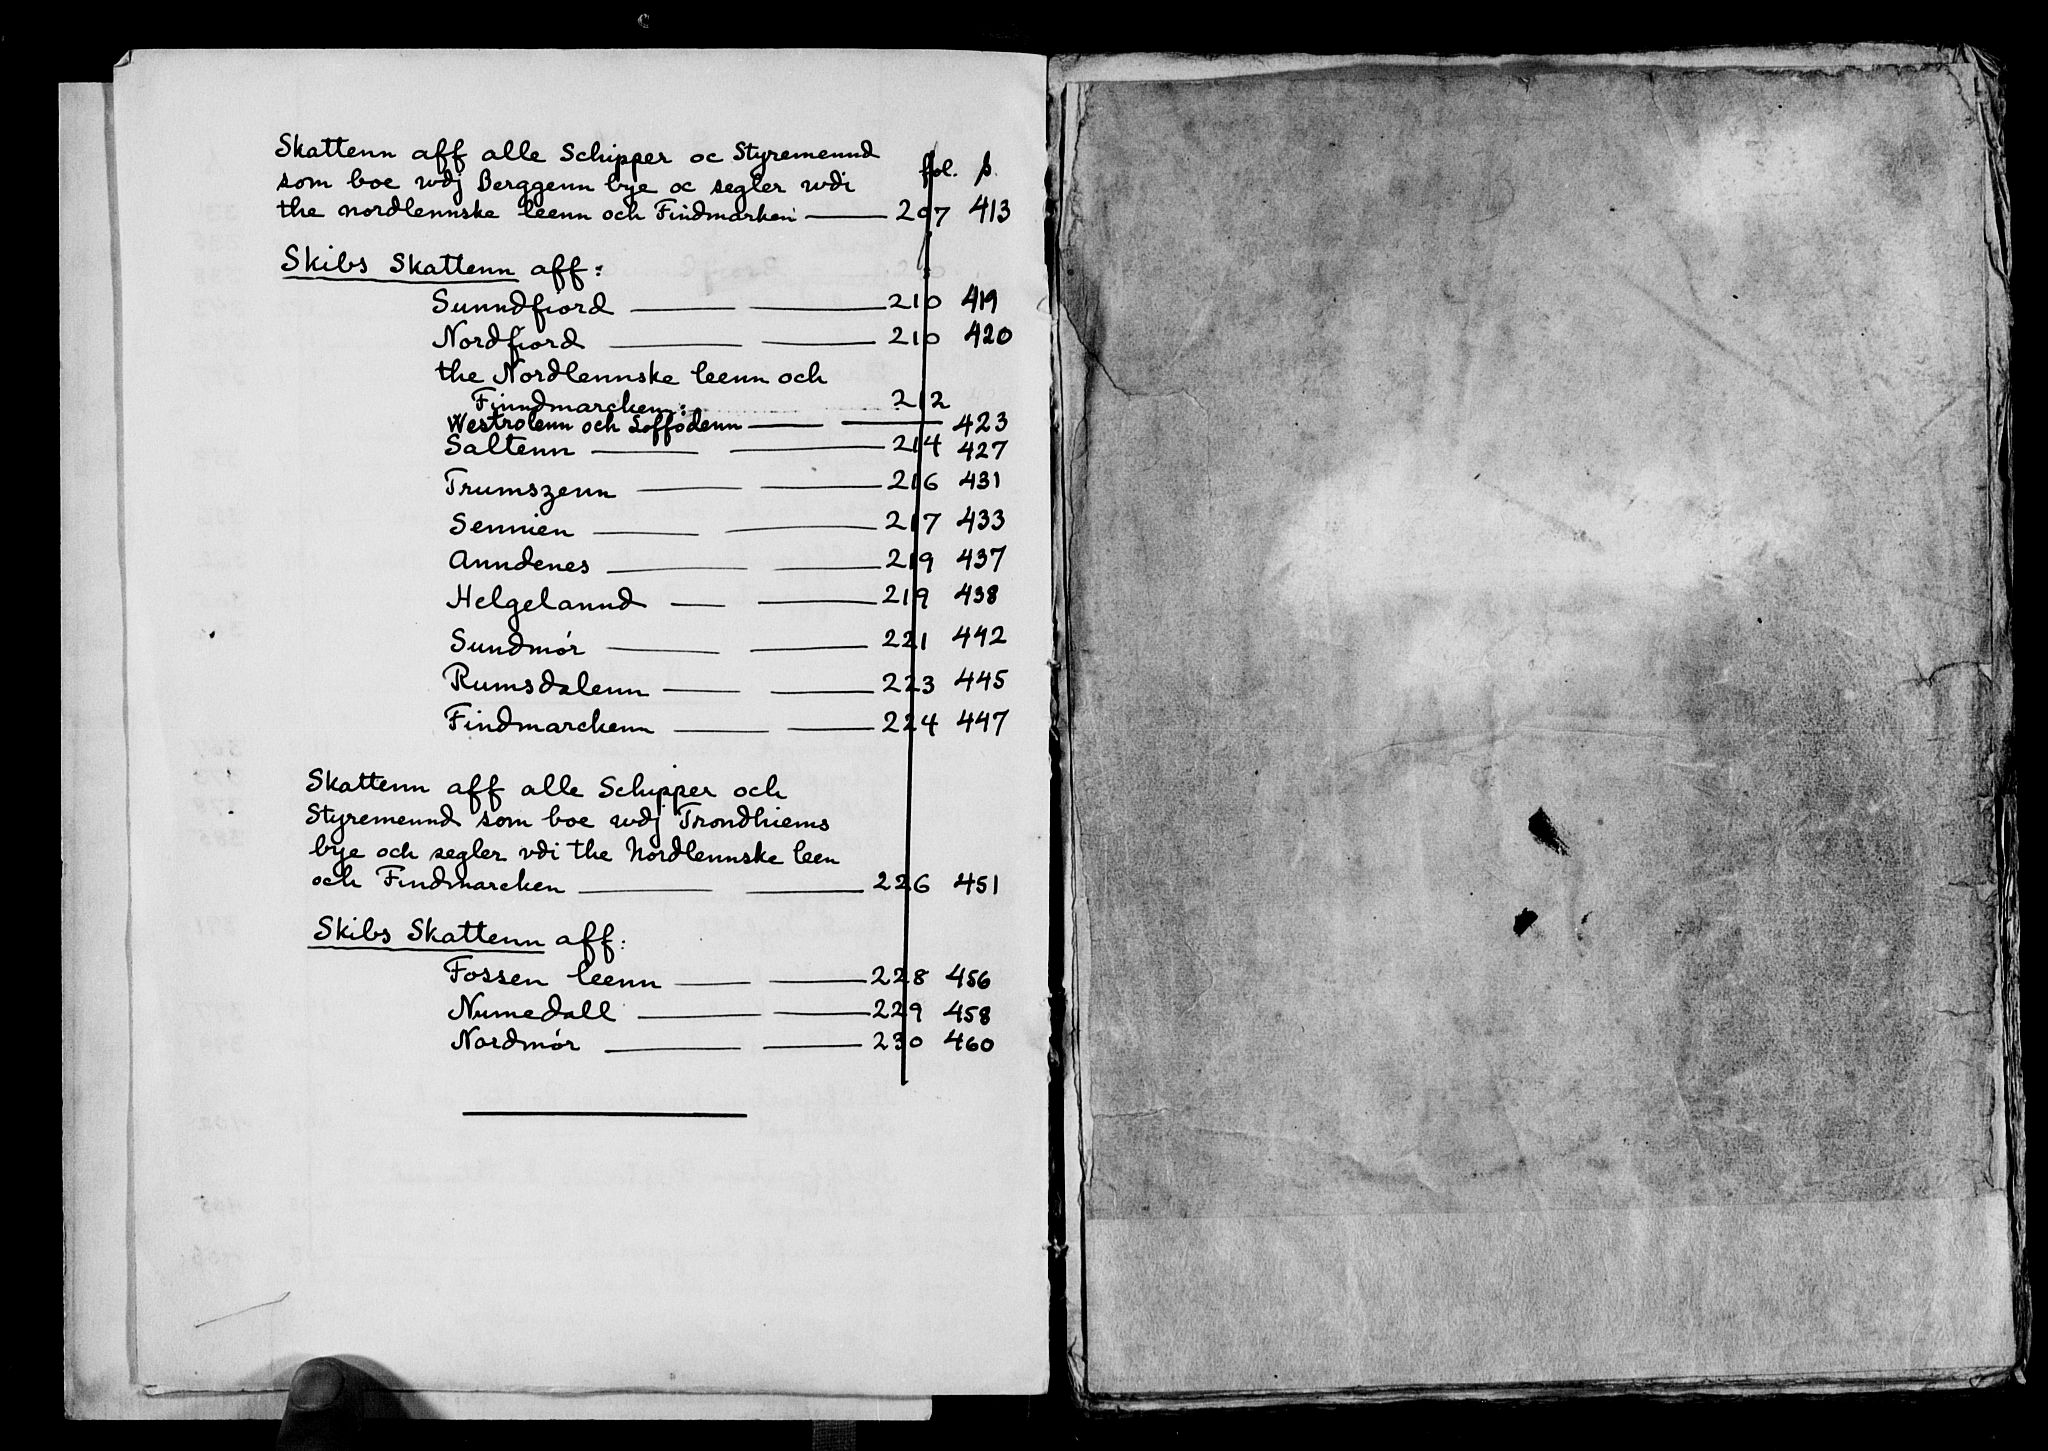 Skattenn aff alle Schipper oc Styremennd
som boe wdj Berggenn bye oc segler wdi fol. p.
the nordlennske leenn och Findmarken 207 413
Skibs Skattenn aff:
Sunndfiord 210 419
Nordfiord 210 420
the Nordlennske leenn och
Finndmarcken: 212
Westrolenn och Loffodenn 423
Saltenn 214 427
Trumszenn 216 431
Sennien 217 433
Anndenes 219 437
Helgelannd 219 438
Sundmør 221 442
Rumsdalenn 223 445
Findmarckenn 224 447
Skattenn aff alle Schipper och
Styremennd som boe wdj Trondhiems
bye och segler vdi the Nordlennske leen
och Findmarcken 226 451
Skibs Skattenn aff:
Fossen leenn 228 456
Numedall 229 458
Nordmør 230 460